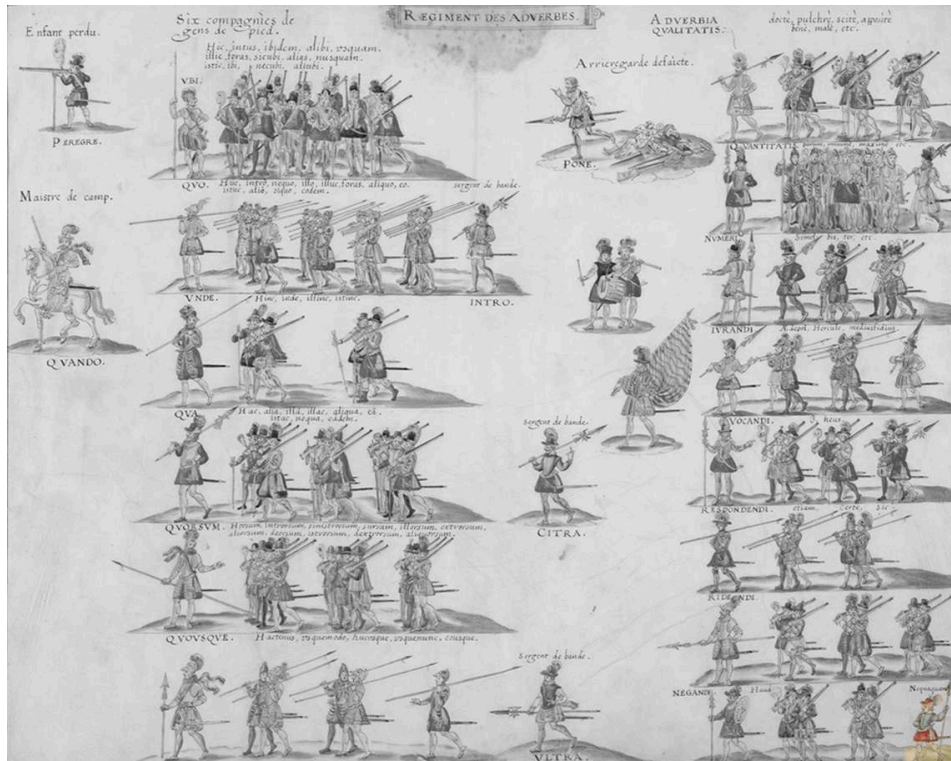 RÆGIMENT DES ADVERBES.
Enfant perdu.
PEREGRE.
Maistre de camp.
QVANDO.
Six compagnies de
gens de pied.
Hic, intus, ibidem, alibi, vsquam.
illic, foras, sicubi, aliqs, nusquam.
istic, ibi, necubi, alicubi.
VBI.
QVO. Huc, intro, nequo, illo, illuc, foras, aliquo, eo.
istuc, alio, siquo, eodem.
sergent de bande.
VNDE. Hinc, inde, illinc, istinc.
INTRO.
QVA. Hac, alia, illa, illac, aliqua, ea.
istac, nequa, eadem.
QVORSVM. Horsum, introrsum, sinistrorsum, sursum, illorsum, extrorsum,
aliorsum, deorsum, istorsum, dextrorsum, aliquorsum.
QVOVSQVE. Hactenus, vsquemodo, hucusque, vsquenunc, eousque.
Arrieregarde defaicte.
PONE.
Sergent de bande.
CITRA.
Sergent de bande.
VLTRA.
ADVERBIA
QVALITATIS.
doctè, pulchrè, scitè, appositè
benè, malè, etc.
QVANTITATIS. parum, minimè, maximè etc.
NVMERI. Semel, bis, ter, etc.
IVRANDI. Ædepol, Hercule, mediusfidius
VOCANDI. heus
RESPONDENDI. etiam, certe, sic.
RIDENDI.
NEGANDI. Haud
Nequaquam